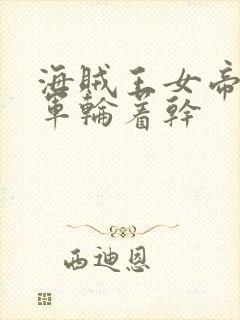 海賊王女帝
軍輪著幹
西迪恩